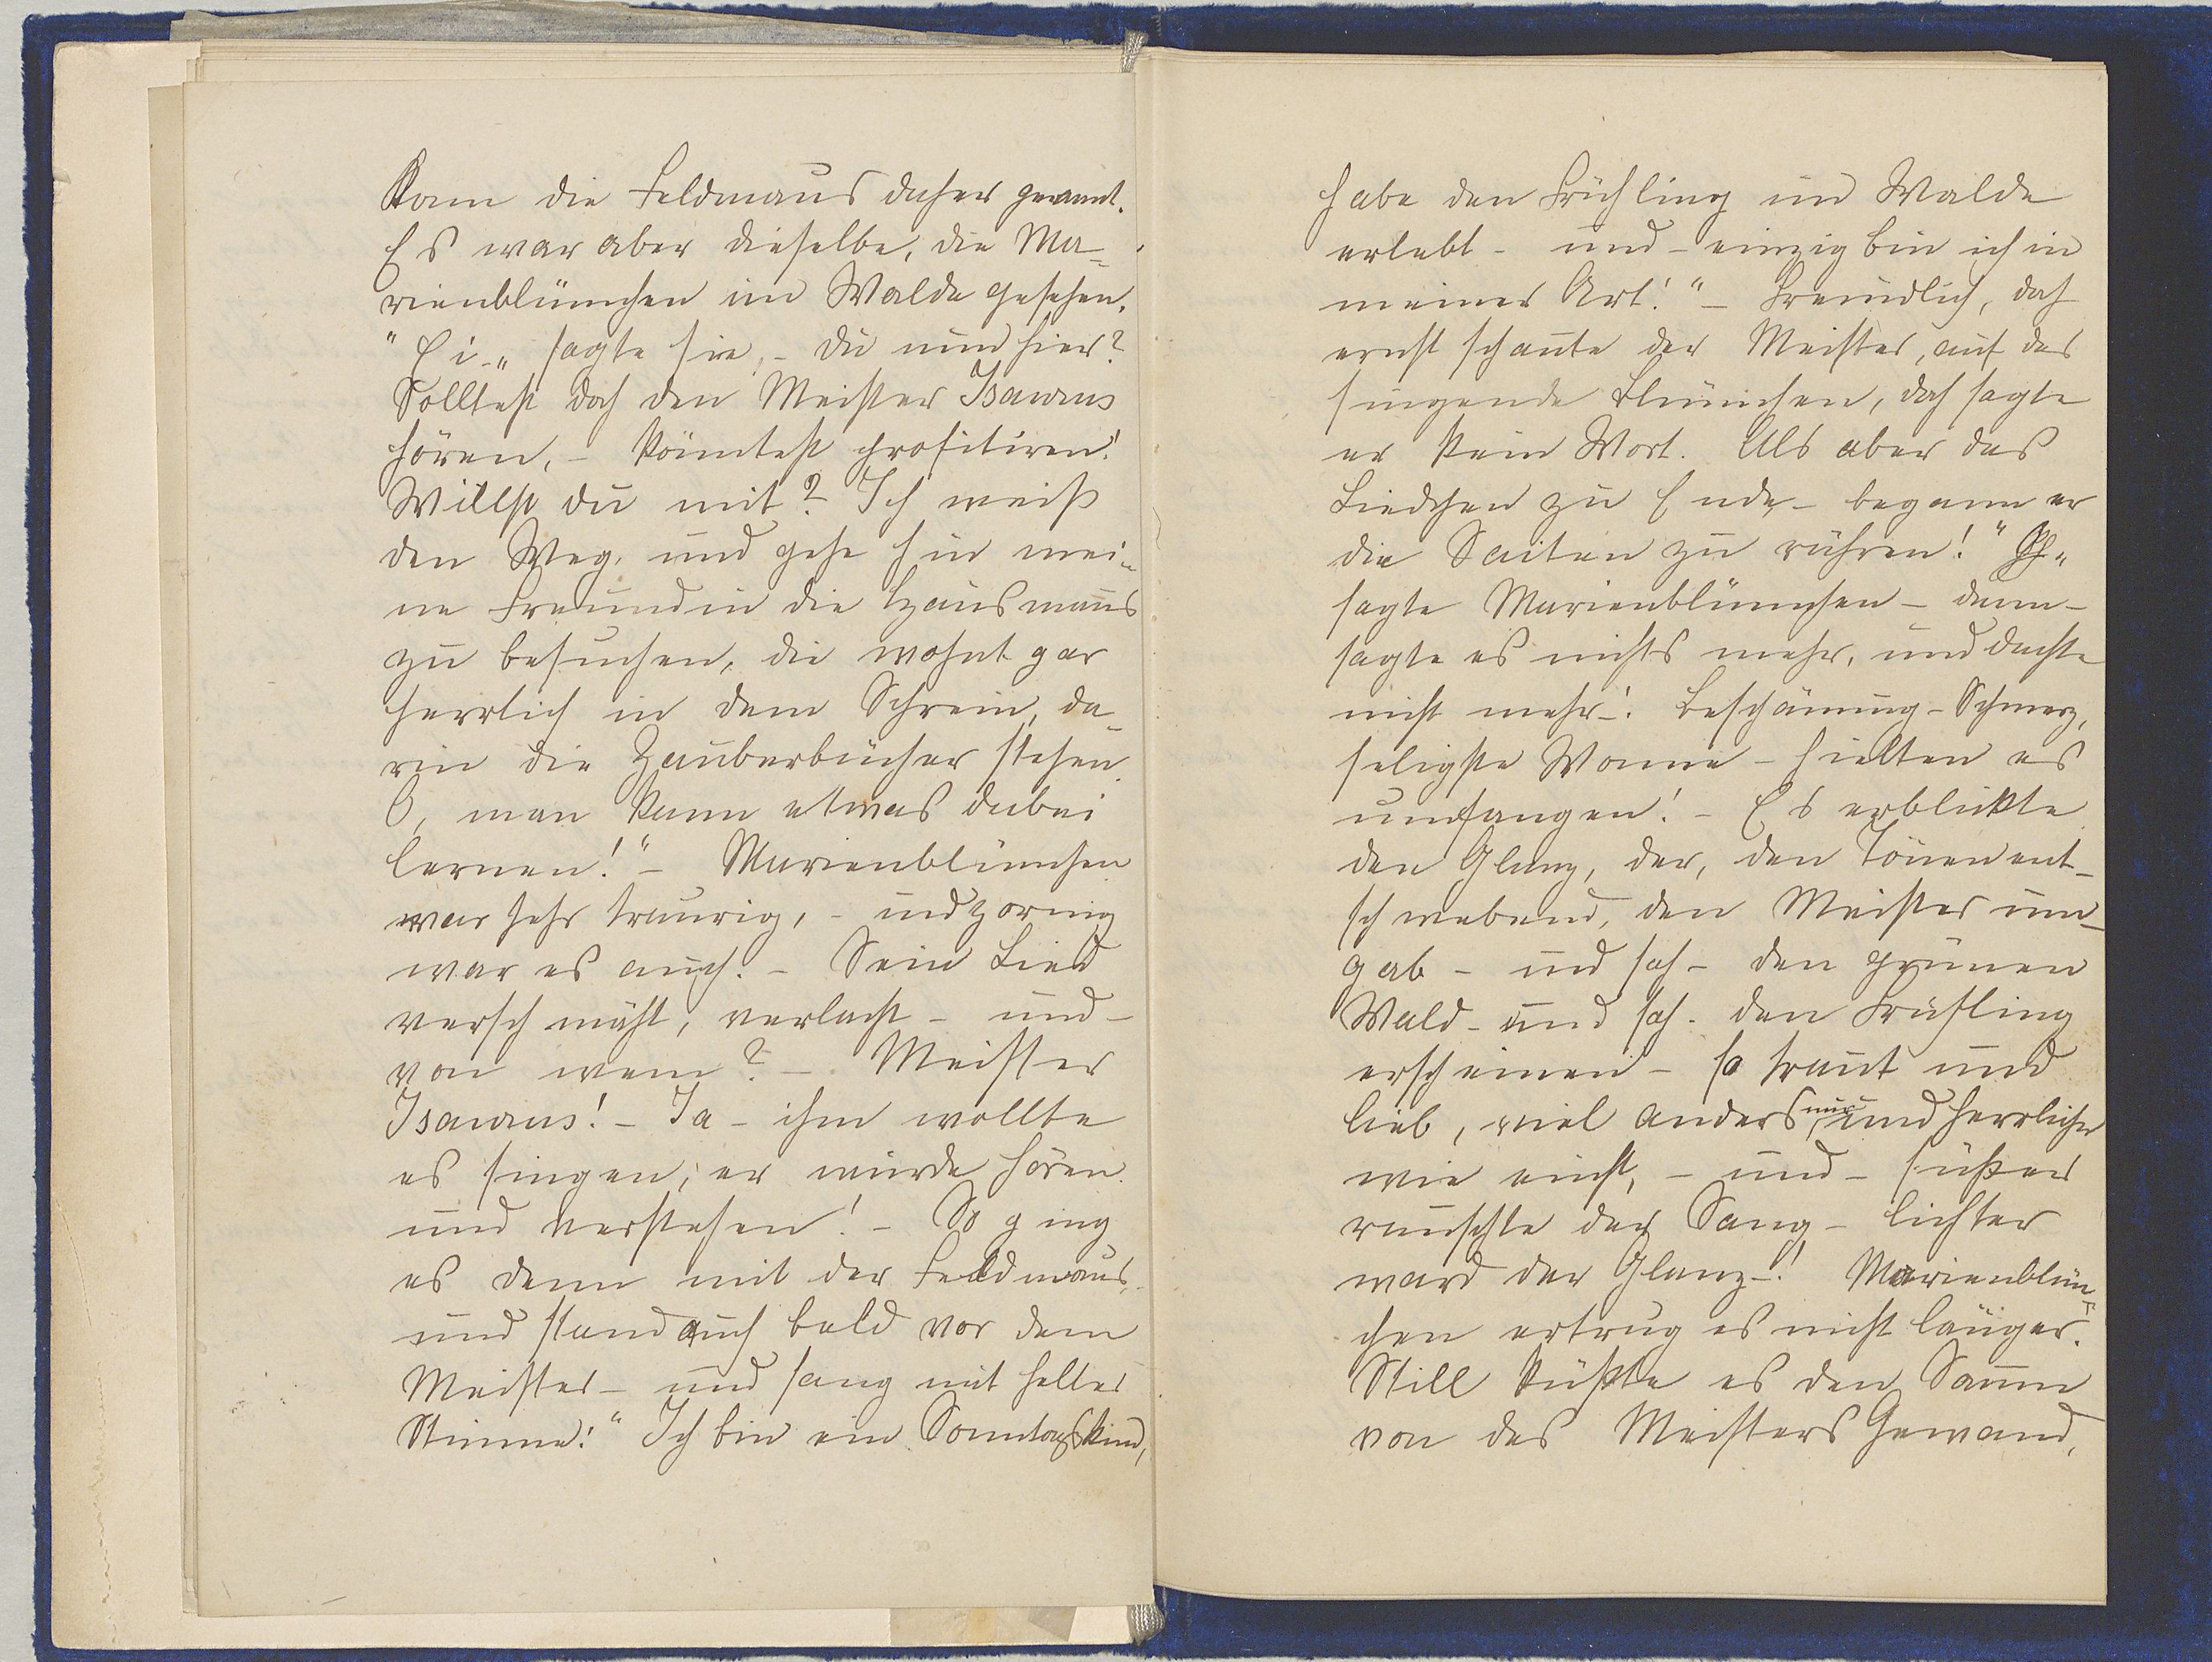 kam die Feldmaus daher gerannt.
Es war aber dieselbe, die Ma-
rienblümchen im Walde gesehen.
"Ei-" sagte sie, - du nun hier?
Solltest doch den Meister Isawrus
hören, - könntest profitiren!
Willst du mit? Ich weiß
den Weg, und gehe hin mei-
ne Freundin die Hausmaus
zu besuchen, die wohnt gar
herrlich in dem Schrein, da-
rin die Zauberbücher stehen.
O, man kann etwas dabei
lernen!" - Marienblümchen
war sehr traurig, - und zornig
war es auch. - Sein Lied
verschmäht, verlacht - und -
von wem? - Meister
Isawrus! - Ja - ihm wollte
es singen, er würde hören
und verstehen! - So ging
es denn mit der Feldmaus,
und stand auch bald vor dem
Meister - und sang mit heller
Stimme: "Ich bin ein Sonntagskind,
habe den Frühling im Walde
erlebt - und - einzig bin ich in
meiner Art!" - Freundlich, doch
ernst schaute der Meister, auf das
singende Blümchen, doch sagte
er kein Wort. Als aber das
Liedchen zu Ende, - begann er
die Saiten zu rühren!
sagte Marienblümchen - dann -
sagte es nichts mehr, und dachte
nicht mehr -! Beschämung - Schmerz,
seligste Wonne - hielten es
umfangen! - Es erblickte
den Glanz, der, den Tönen ent-
schwebend, den Meister um-
gab - und sah - den grünen
Wald - und sah - den Frühling
erscheinen - so traut und
lieb, viel anders, nur und herrlicher
wie einst, - und - süßer
rauschte der Sang - lichter
ward der Glanz -! Marienblüm-
chen ertrug es nicht länger.
Still küßte es den Saum
von des Meisters Gewand,